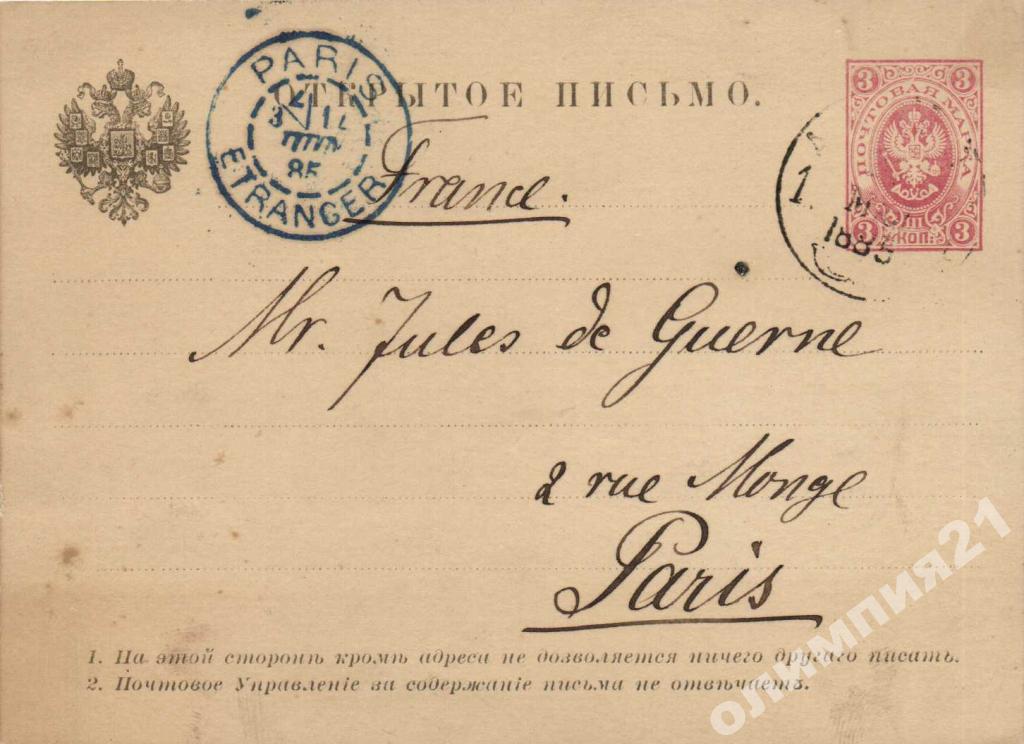 ОТКРЫТОЕ ПИСЬМО.
PARIS
85
ETRANGER
3 3
ПОЧТОВАЯ МАРКА
3 КОП. 3
1
1885
France.
Mr. Jules de Guerne
2 rue Monge
Paris
1. На этой сторонѣ кромѣ адреса не дозволяется ничего другаго писать.
2. Почтовое Управленіе за содержаніе письма не отвѣчаетъ.
олимпия21